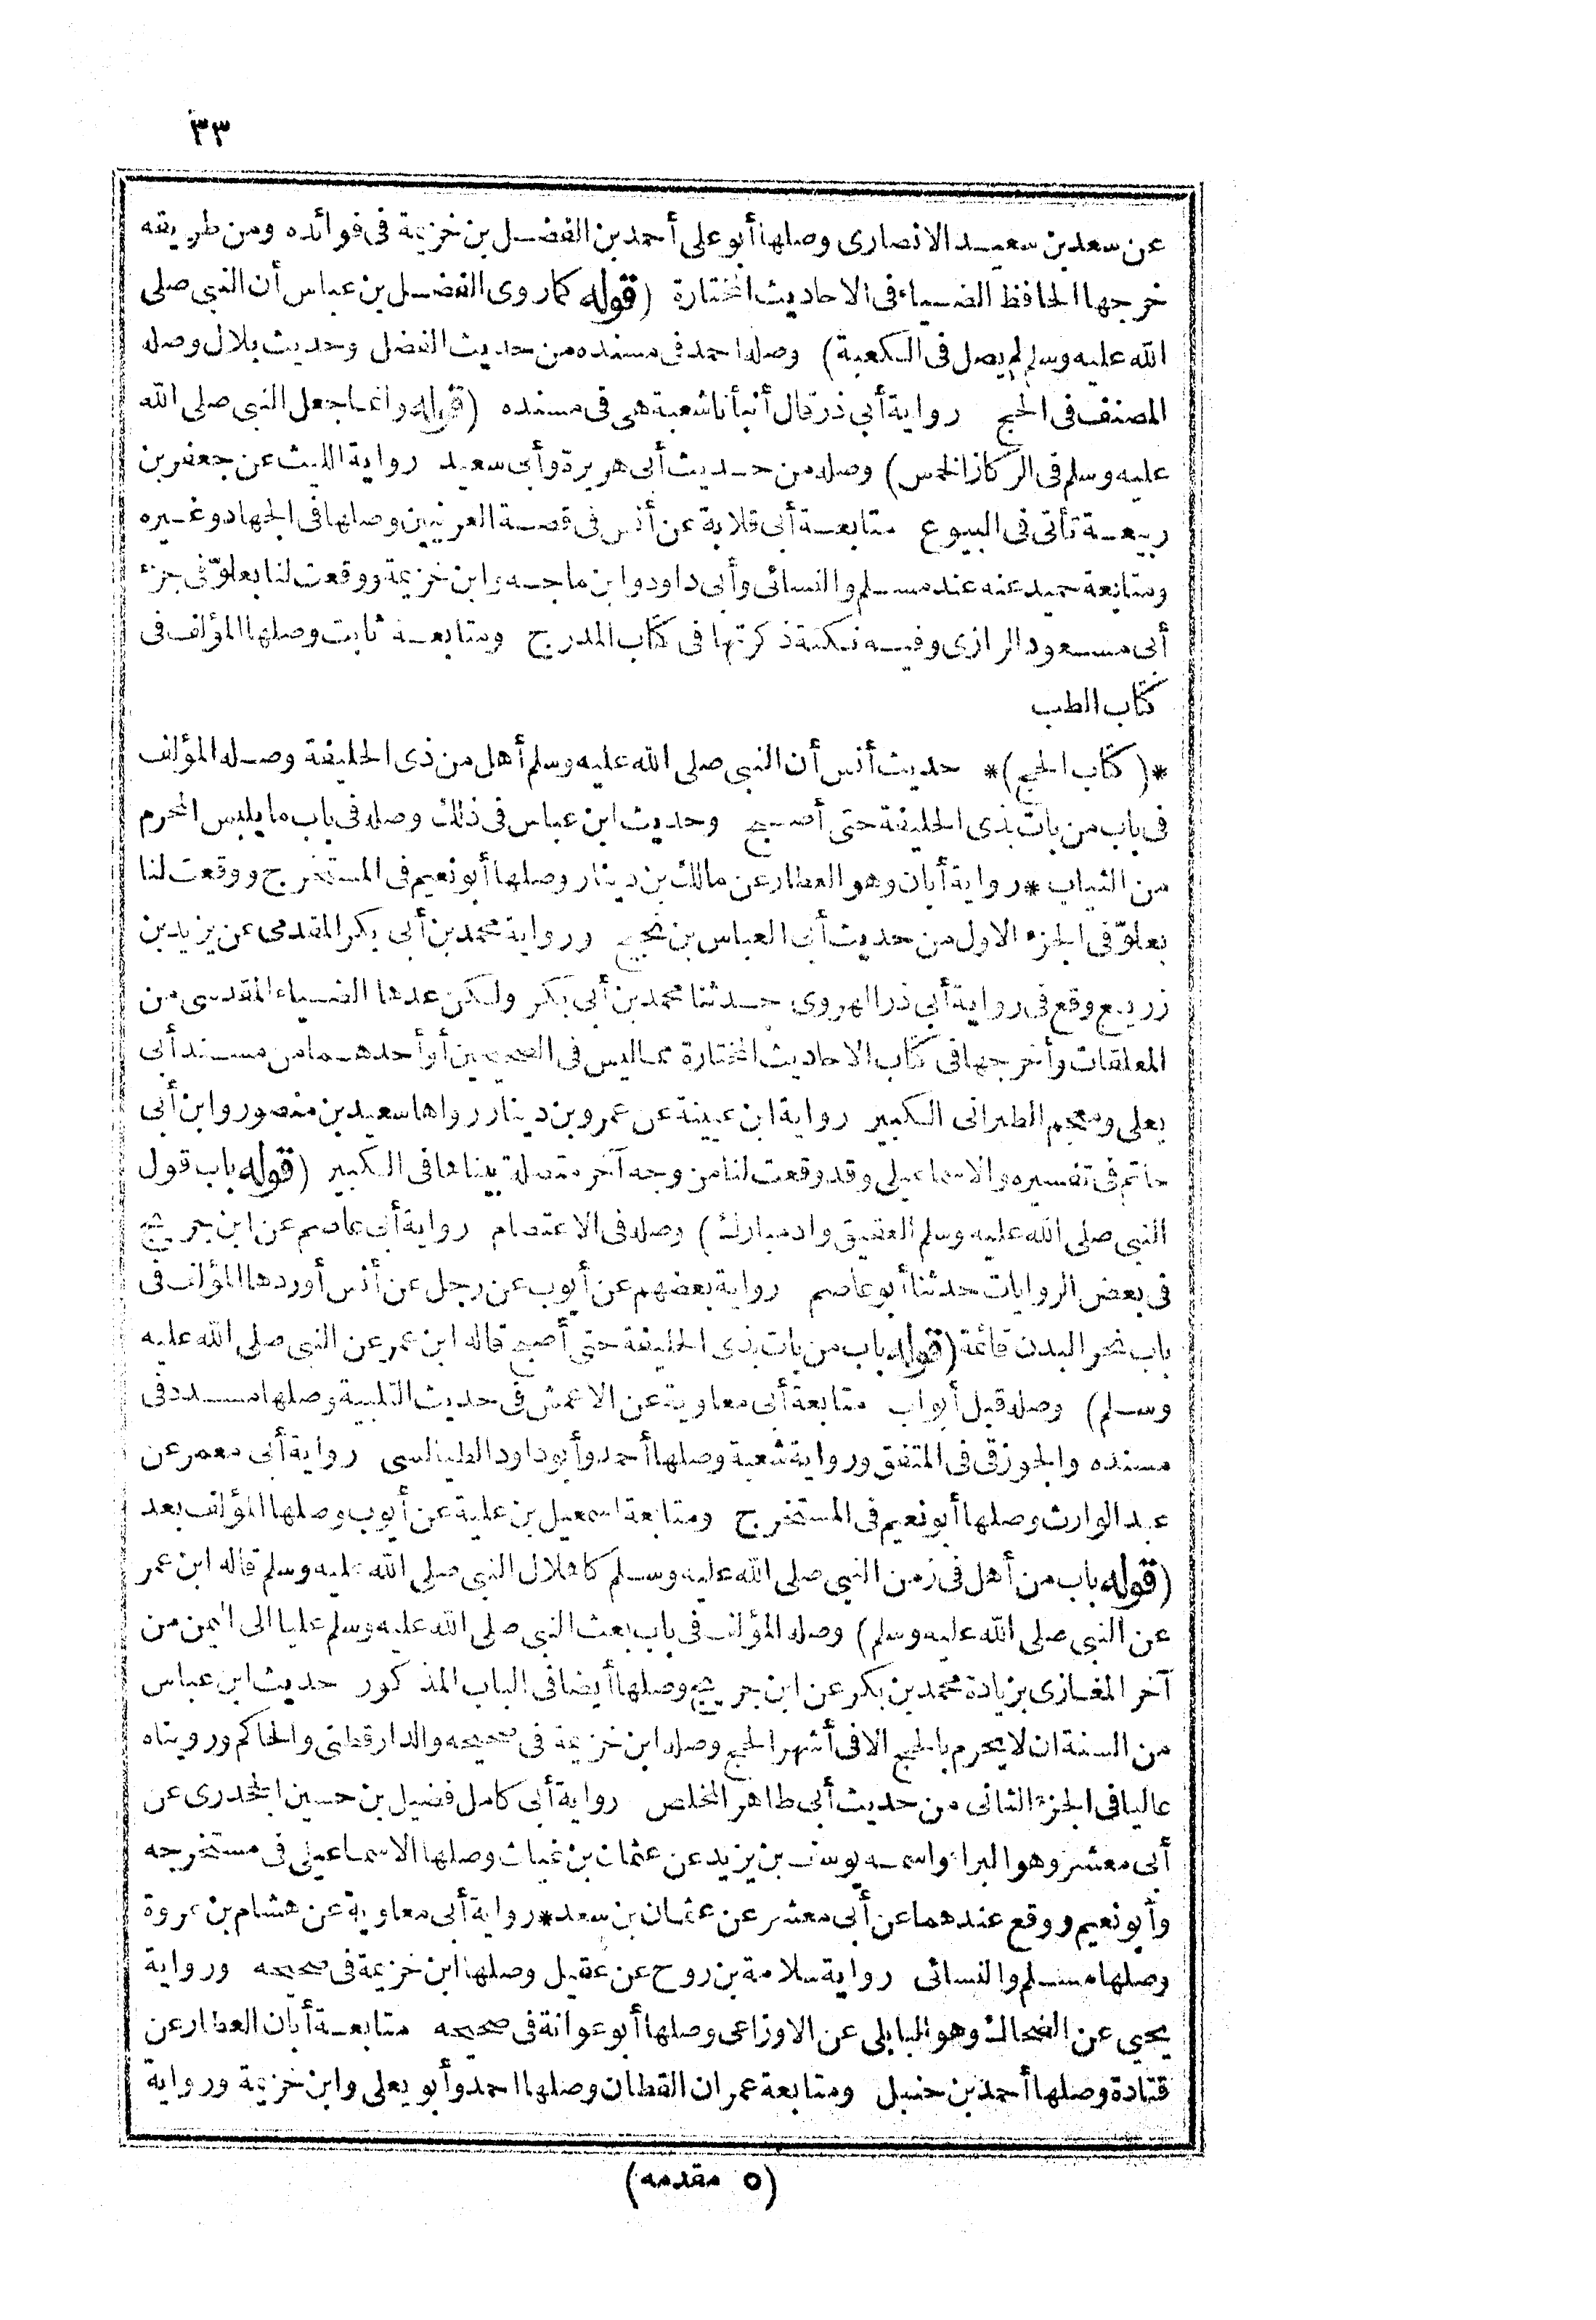 ٣٣
عن سعد بن سعيد الانصارى وصلها أبو على أحمد بن الفضل بن خزيمة فى فوائده ومن طريقه
خرجها الحافظ الضياء فى الاحاديث المختارة (قوله كما روى الفضل بن عباس أن النبى صلى
الله عليه وسلم لم يصل فى الكعبة) وصله احمد فى مسنده من حديث الفضل وحديث بلال وصله
المصنف فى الحج رواية أبى ذر قال أنبأنا شعبة هى فى مسنده (قوله وانما جعل النبى صلى الله
عليه وسلم فى الركاز الخمس) وصله من حديث أبى هريرة وأبى سعيد رواية الليث عن جعفر بن
ربيعة تأتى فى البيوع متابعة أبى قلابة عن أنس فى قصة العرنيين وصلها فى الجهاد وغيره
ومتابعة حميد عنه عند مسلم والنسائى وأبى داود وابن ماجه وابن خزيمة ووقعت لنا بعلوّ فى جزء
أبى مسعود الرازى وفيه نكتة ذكرتها فى كتاب المدرج ومتابعة ثابت وصلها المؤلف فى
كتاب الطب
*(كتاب الحج)* حديث أنس أن النبى صلى الله عليه وسلم أهل من ذى الحليفة وصله المؤلف
فى باب من بات بذى الحليفة حتى أصبح وحديث ابن عباس فى ذلك وصله فى باب ما يلبس المحرم
من الثياب *رواية أبان وهو العطار عن مالك بن دينار وصلها أبو نعيم فى المستخرج ووقعت لنا
بعلوّ فى الجزء الاول من حديث أبى العباس بن نجيح ورواية محمد بن أبى بكر المقدمى عن يزيد بن
زريع وقع فى رواية أبى ذر الهروى حدثنا محمد بن أبى بكر ولكن عدها الضياء المقدسى من
المعلقات وأخرجها فى كتاب الاحاديث المختارة مما ليس فى الصحيحين أو أحدهما من مسند أبى
يعلى ومعجم الطبرانى الكبير رواية ابن عيينة عن عمرو بن دينار رواها سعيد بن منصور وابن أبى
حاتم فى تفسيره والاسماعيلى وقد وقعت لنا من وجه آخر متصلة بيناها فى الكبير (قوله باب قول
النبى صلى الله عليه وسلم العقيق واد مبارك) وصله فى الاعتصام رواية أبى عاصم عن ابن جريج
فى بعض الروايات حدثنا أبو عاصم رواية بعضهم عن أيوب عن رجل عن أنس أوردها المؤلف فى
باب نحر البدن قائمة (قوله باب من بات بذى الحليفة حتى أصبح قاله ابن عمر عن النبى صلى الله عليه
وسلم) وصله قبل أبواب متابعة أبى معاوية عن الاعمش فى حديث التلبية وصلها مسدد فى
مسنده والجوزقى فى المتفق ورواية شعبة وصلها أحمد وأبو داود الطيالسى رواية أبى معمر عن
عبد الوارث وصلها أبو نعيم فى المستخرج ومتابعة اسمعيل بن علية عن أيوب وصلها المؤلف بعد
(قوله باب من أهل فى زمن النبى صلى الله عليه وسلم كاهلال النبى صلى الله عليه وسلم قاله ابن عمر
عن النبى صلى الله عليه وسلم) وصله المؤلف فى باب بعث النبى صلى الله عليه وسلم عليا الى اليمن من
آخر المغازى بزيادة محمد بن بكر عن ابن جريج وصلها أيضا فى الباب المذكور حديث ابن عباس
من السنة ان لا يحرم بالحج الا فى أشهر الحج وصله ابن خزيمة فى صحيحه والدارقطنى والحاكم ورويناه
عاليا فى الجزء الثانى من حديث أبى طاهر المخلص رواية أبى كامل فضيل بن حسين الجحدرى عن
أبى معشر وهو البراء واسمه يوسف بن يزيد عن عثمان بن غياث وصلها الاسماعيلى فى مستخرجه
وأبو نعيم ووقع عندهما عن أبى معشر عن عثمان بن سعد*رواية أبى معاوية عن هشام بن عروة
وصلها مسلم والنسائى رواية سلامة بن روح عن عقيل وصلها ابن خزيمة فى صحيحه ورواية
يحيى عن الضحاك وهو البابلى عن الاوزاعى وصلها أبو عوانة فى صحيحه متابعة أبان العطار عن
قتادة وصلها أحمد بن حنبل ومتابعة عمران القطان وصلها احمد وأبو يعلى وابن خزيمة ورواية
(٥ مقدمه)